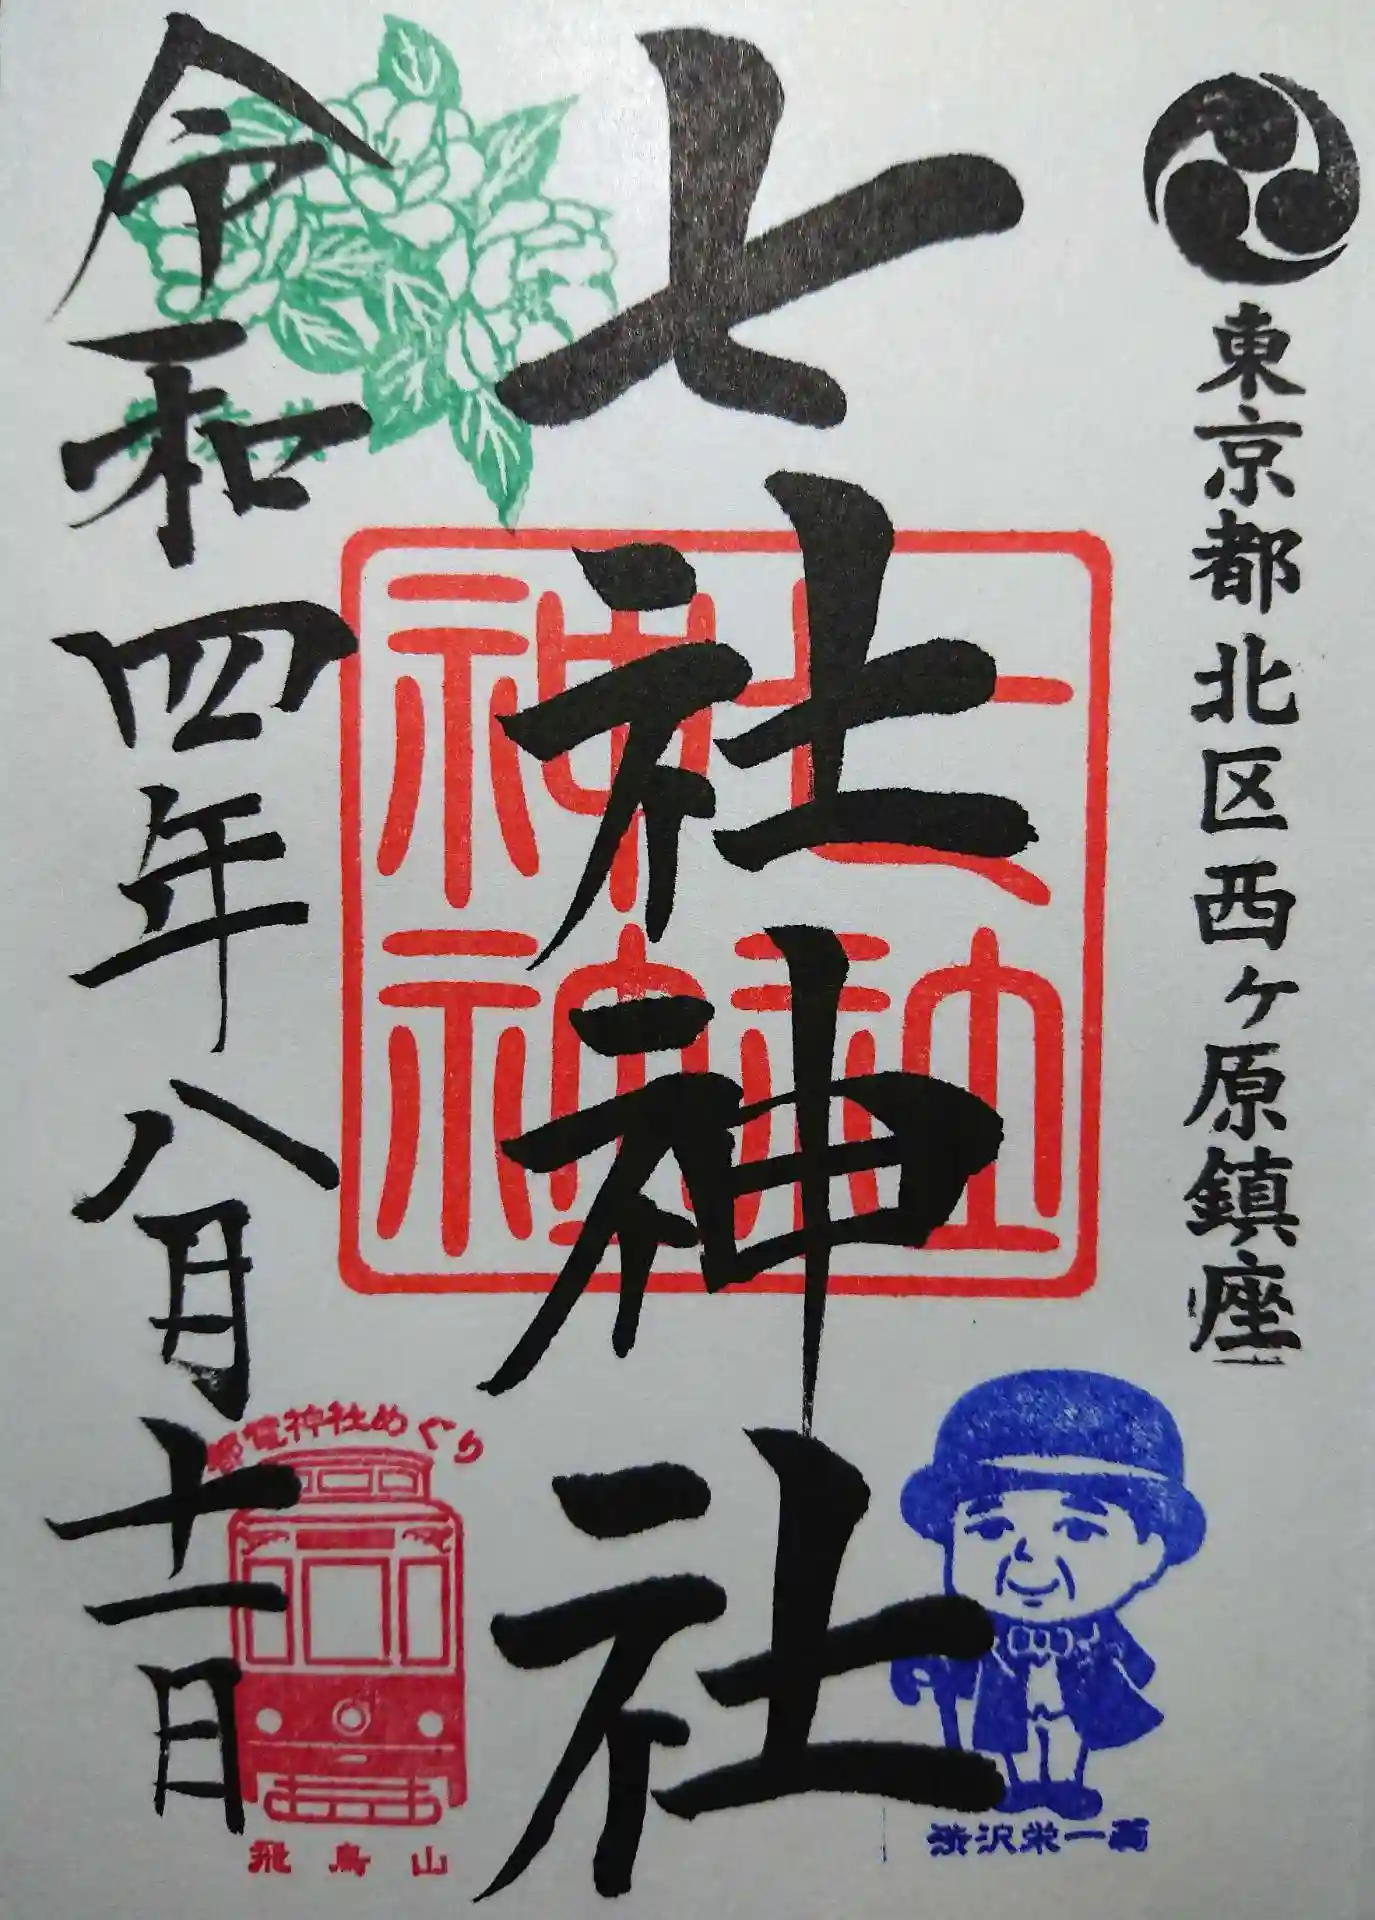 東京都北区西ヶ原鎮座
七社神社
七社
神神
令和四年八月十一日
都電神社めぐり
飛鳥山
渋沢栄一翁